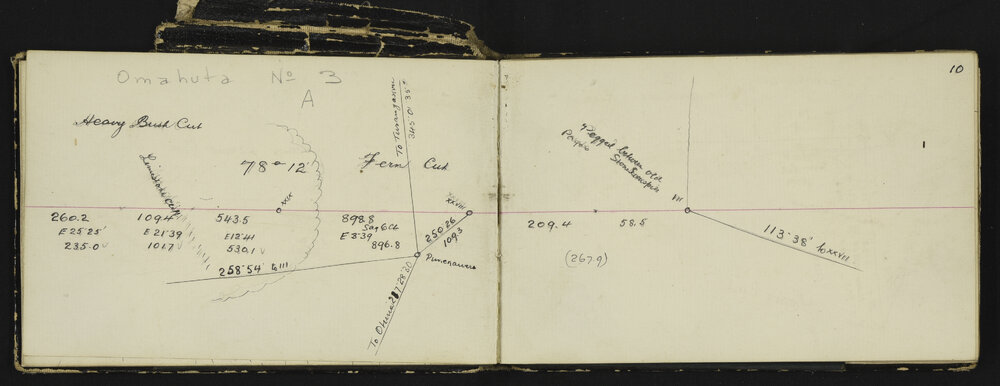 10
Omahuta No 3
A
Heavy Bush Cut
Fern Cut
78° 12'
Limestone Cliff
XXIX
To Turangaroa
345° 01' 35"
XXVIII
260.2
E 25°25'
235.0
109.4
E 21°39
101.7
543.5
E 12°41
530.1
898.8
Sag 6 Ch
E 3°39
896.8
250°26
109.3
258°54' to III
Punenaueru
To Ohinui 217°28'30
Pegged between old
Pouto
VII
209.4
58.5
(267.9)
113°38' to XXVII